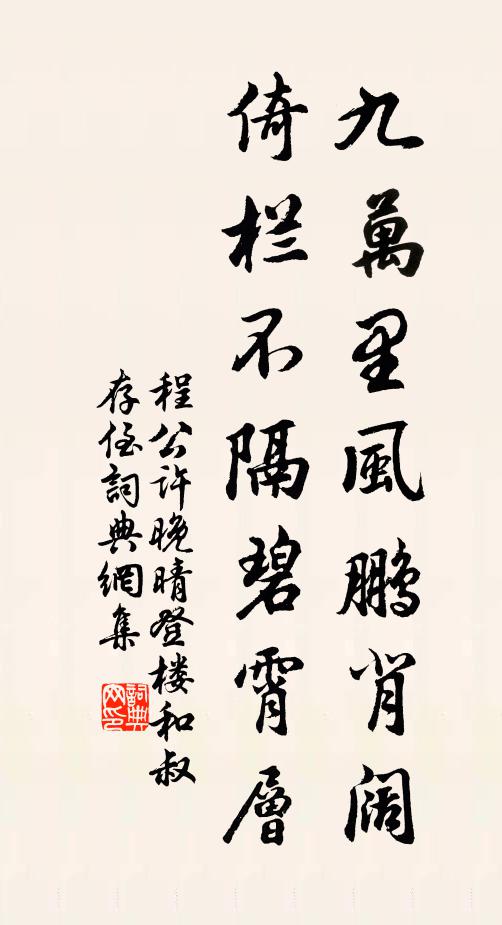 九萬里風鵬背阔
倚栏不隔碧霄層
程公许晚晴登楼和叔
存侄詞典網集
詞典网印